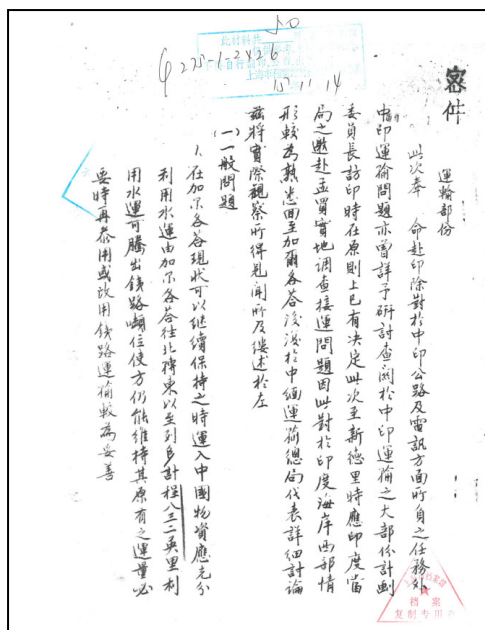 密件
運輸部份
此次奉 命赴印除對於中印公路及電訊方面所負之任務外
中印運輸問題亦曾詳予研討查關於中印運輸之大部份計劃
委員長訪印時在原則上已有決定此次至新德里時應印度當
局之邀赴孟買實地調查接運問題因此對於印度海岸西部情
形較為熟悉回至加爾各答後復於中緬運輸總局代表詳細討論
茲將實際觀察所得見聞所及縷述於左
(一)一般問題
1. 在加尔各答現狀可以继續保持之時運入中國物資應尤分
利用水運由加尔各答往北轉東以至列多計程八三二英里利
用水運可騰出鉄路噸位使方仍能維持其原有之運量必
要時再參用或改用鉄路運輸較為妥善
50
6 225-1-2426
15 11 14
此材料共
档案
复制专用